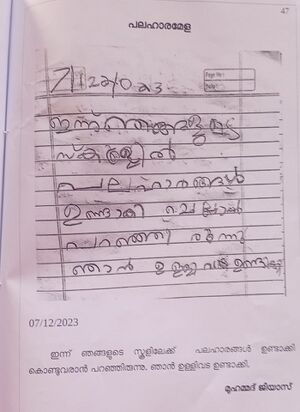 47
പലഹാരമേള
7/12/2023
Page No:
Date:
ഇന്ന് ഞങ്ങളുടെ
സ്കൂളിൽ
പലഹാരങ്ങൾ
ഉണ്ടാകി
പറഞ്ഞി രുന്നു
ഞാൻ ഉണ്ടാക്കി
07/12/2023
ഇന്ന് ഞങ്ങളുടെ സ്കൂളിലേക്ക് പലഹാരങ്ങൾ ഉണ്ടാക്കി
കൊണ്ടുവരാൻ പറഞ്ഞിരുന്നു. ഞാൻ ഉള്ളിവട ഉണ്ടാക്കി.
മുഹമ്മദ് ജിയാസ്